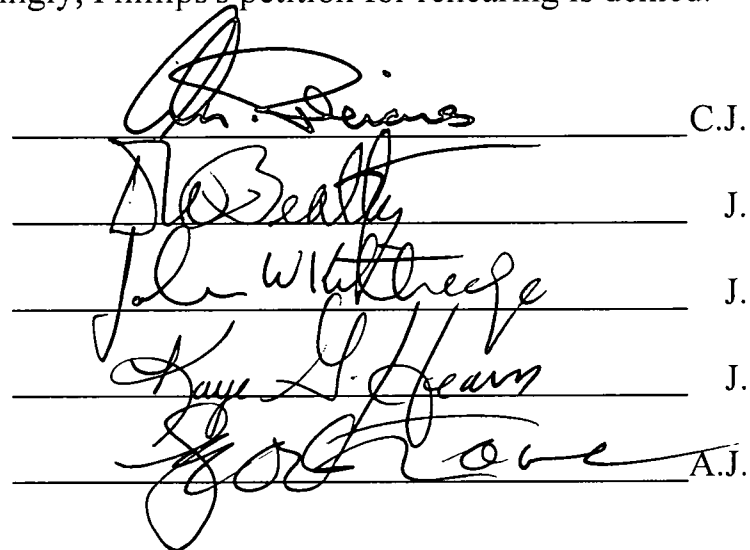 ingly, Phillips's petition for rehearing is denied.
C.J.
Beatty J.
John W Kittredge J.
Kaye G. Hearn J.
A.J.